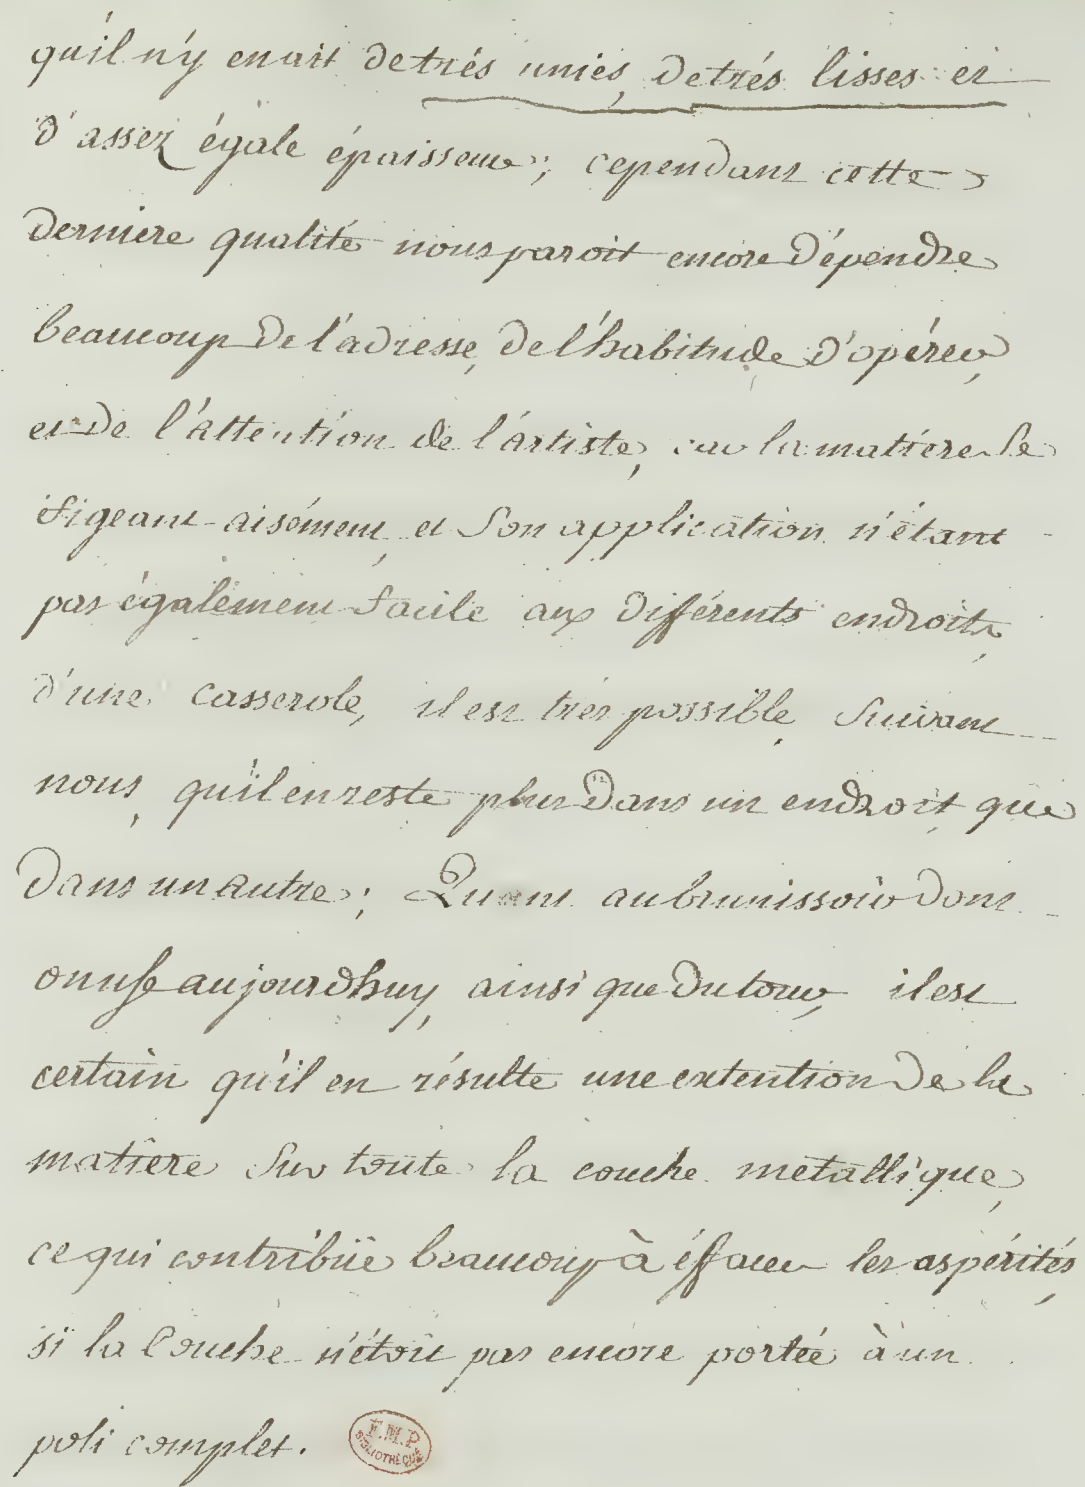 qu'il n'y en ait de très unies, de très lisses et
d'assez égale épaisseur; cependant cette
derniere qualité nous paroit encore dépendre
beaucoup de l'adresse, de l'habitude d'opérer,
et de l'attention de l'artiste, car la matiere se
figeant aisément, et son application n'étant
pas également facile aux différents endroits,
d'une casserole, il est très possible, suivant
nous, qu'il en reste plus dans un endroit, que
dans un autre; Quant au brunissoir dont
on use aujourdhuy, ainsi que du tour, il est
certain qu'il en résulte une extention de la
matiere sur toute la couche metallique,
ce qui contribüe beaucoup à éffacer les aspérités,
si la Couche n'étoit pas encore portée à un
poli complet.
F.M.P.
BIBLIOTHÈQUE